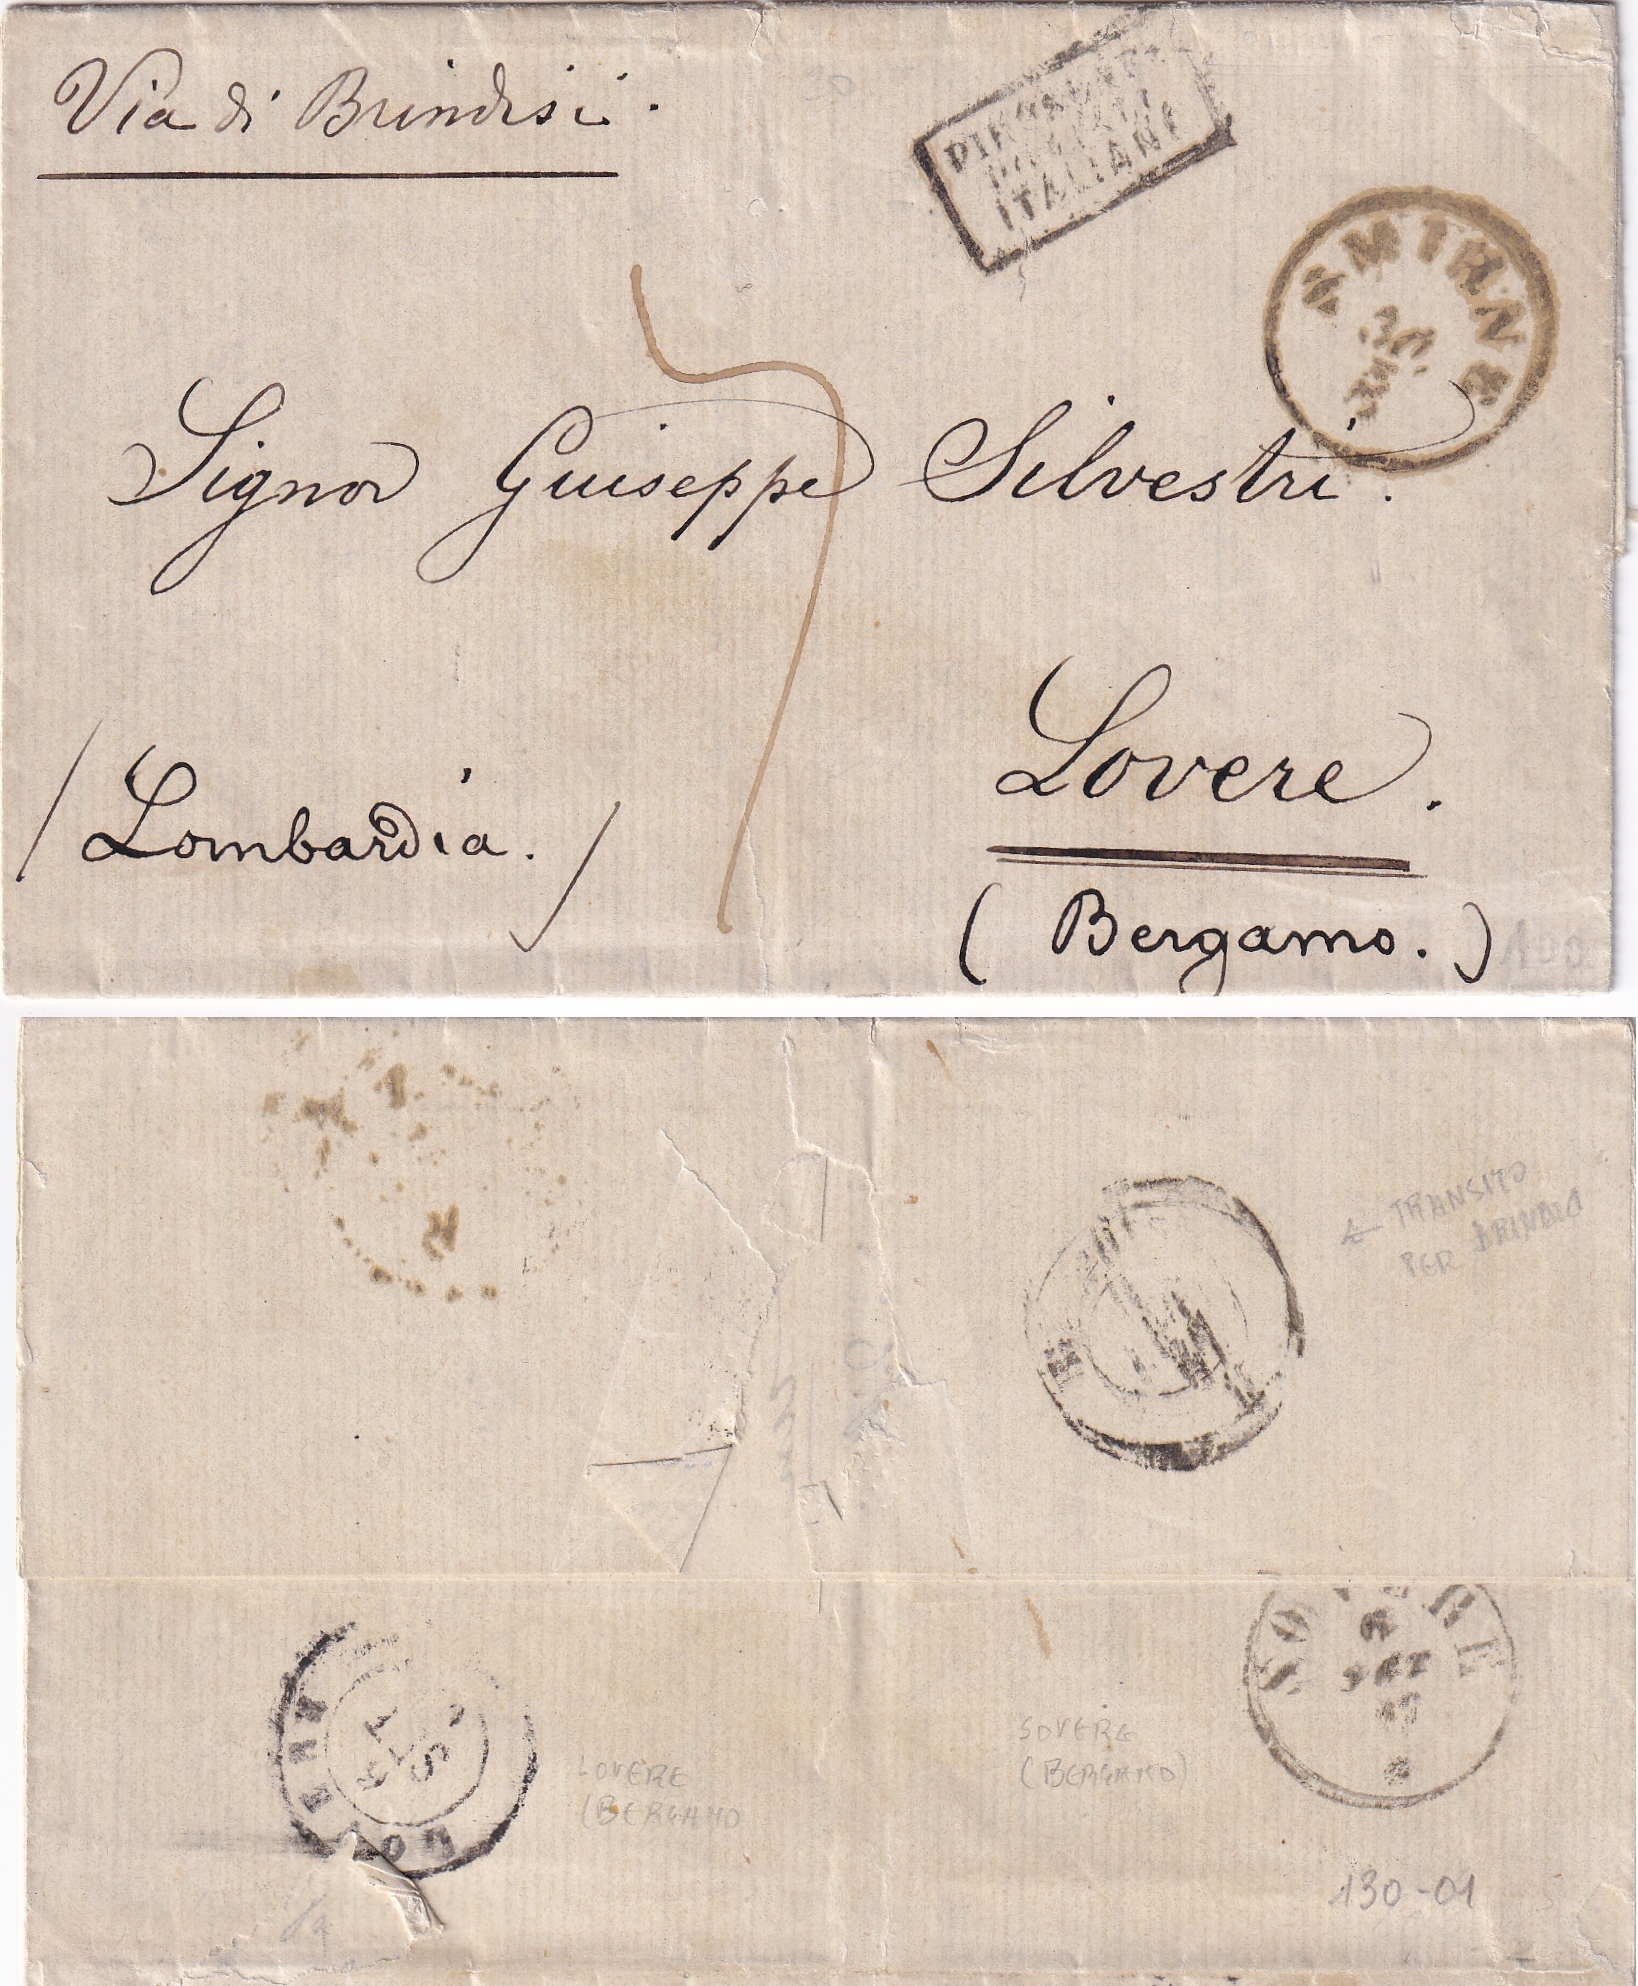 Via di Brindisi.
PIROSCAFI
POSTALI
ITALIANI
SMIRNE
Signor Guiseppe Silvestri.
7
Lovere.
/Lombardia./
(Bergamo.)
← TRANSITO
PER BRINDISI
SOVERE
LOVERE
LOVERE
(BERGAMO
SOVERE
(BERGAMO)
130-01